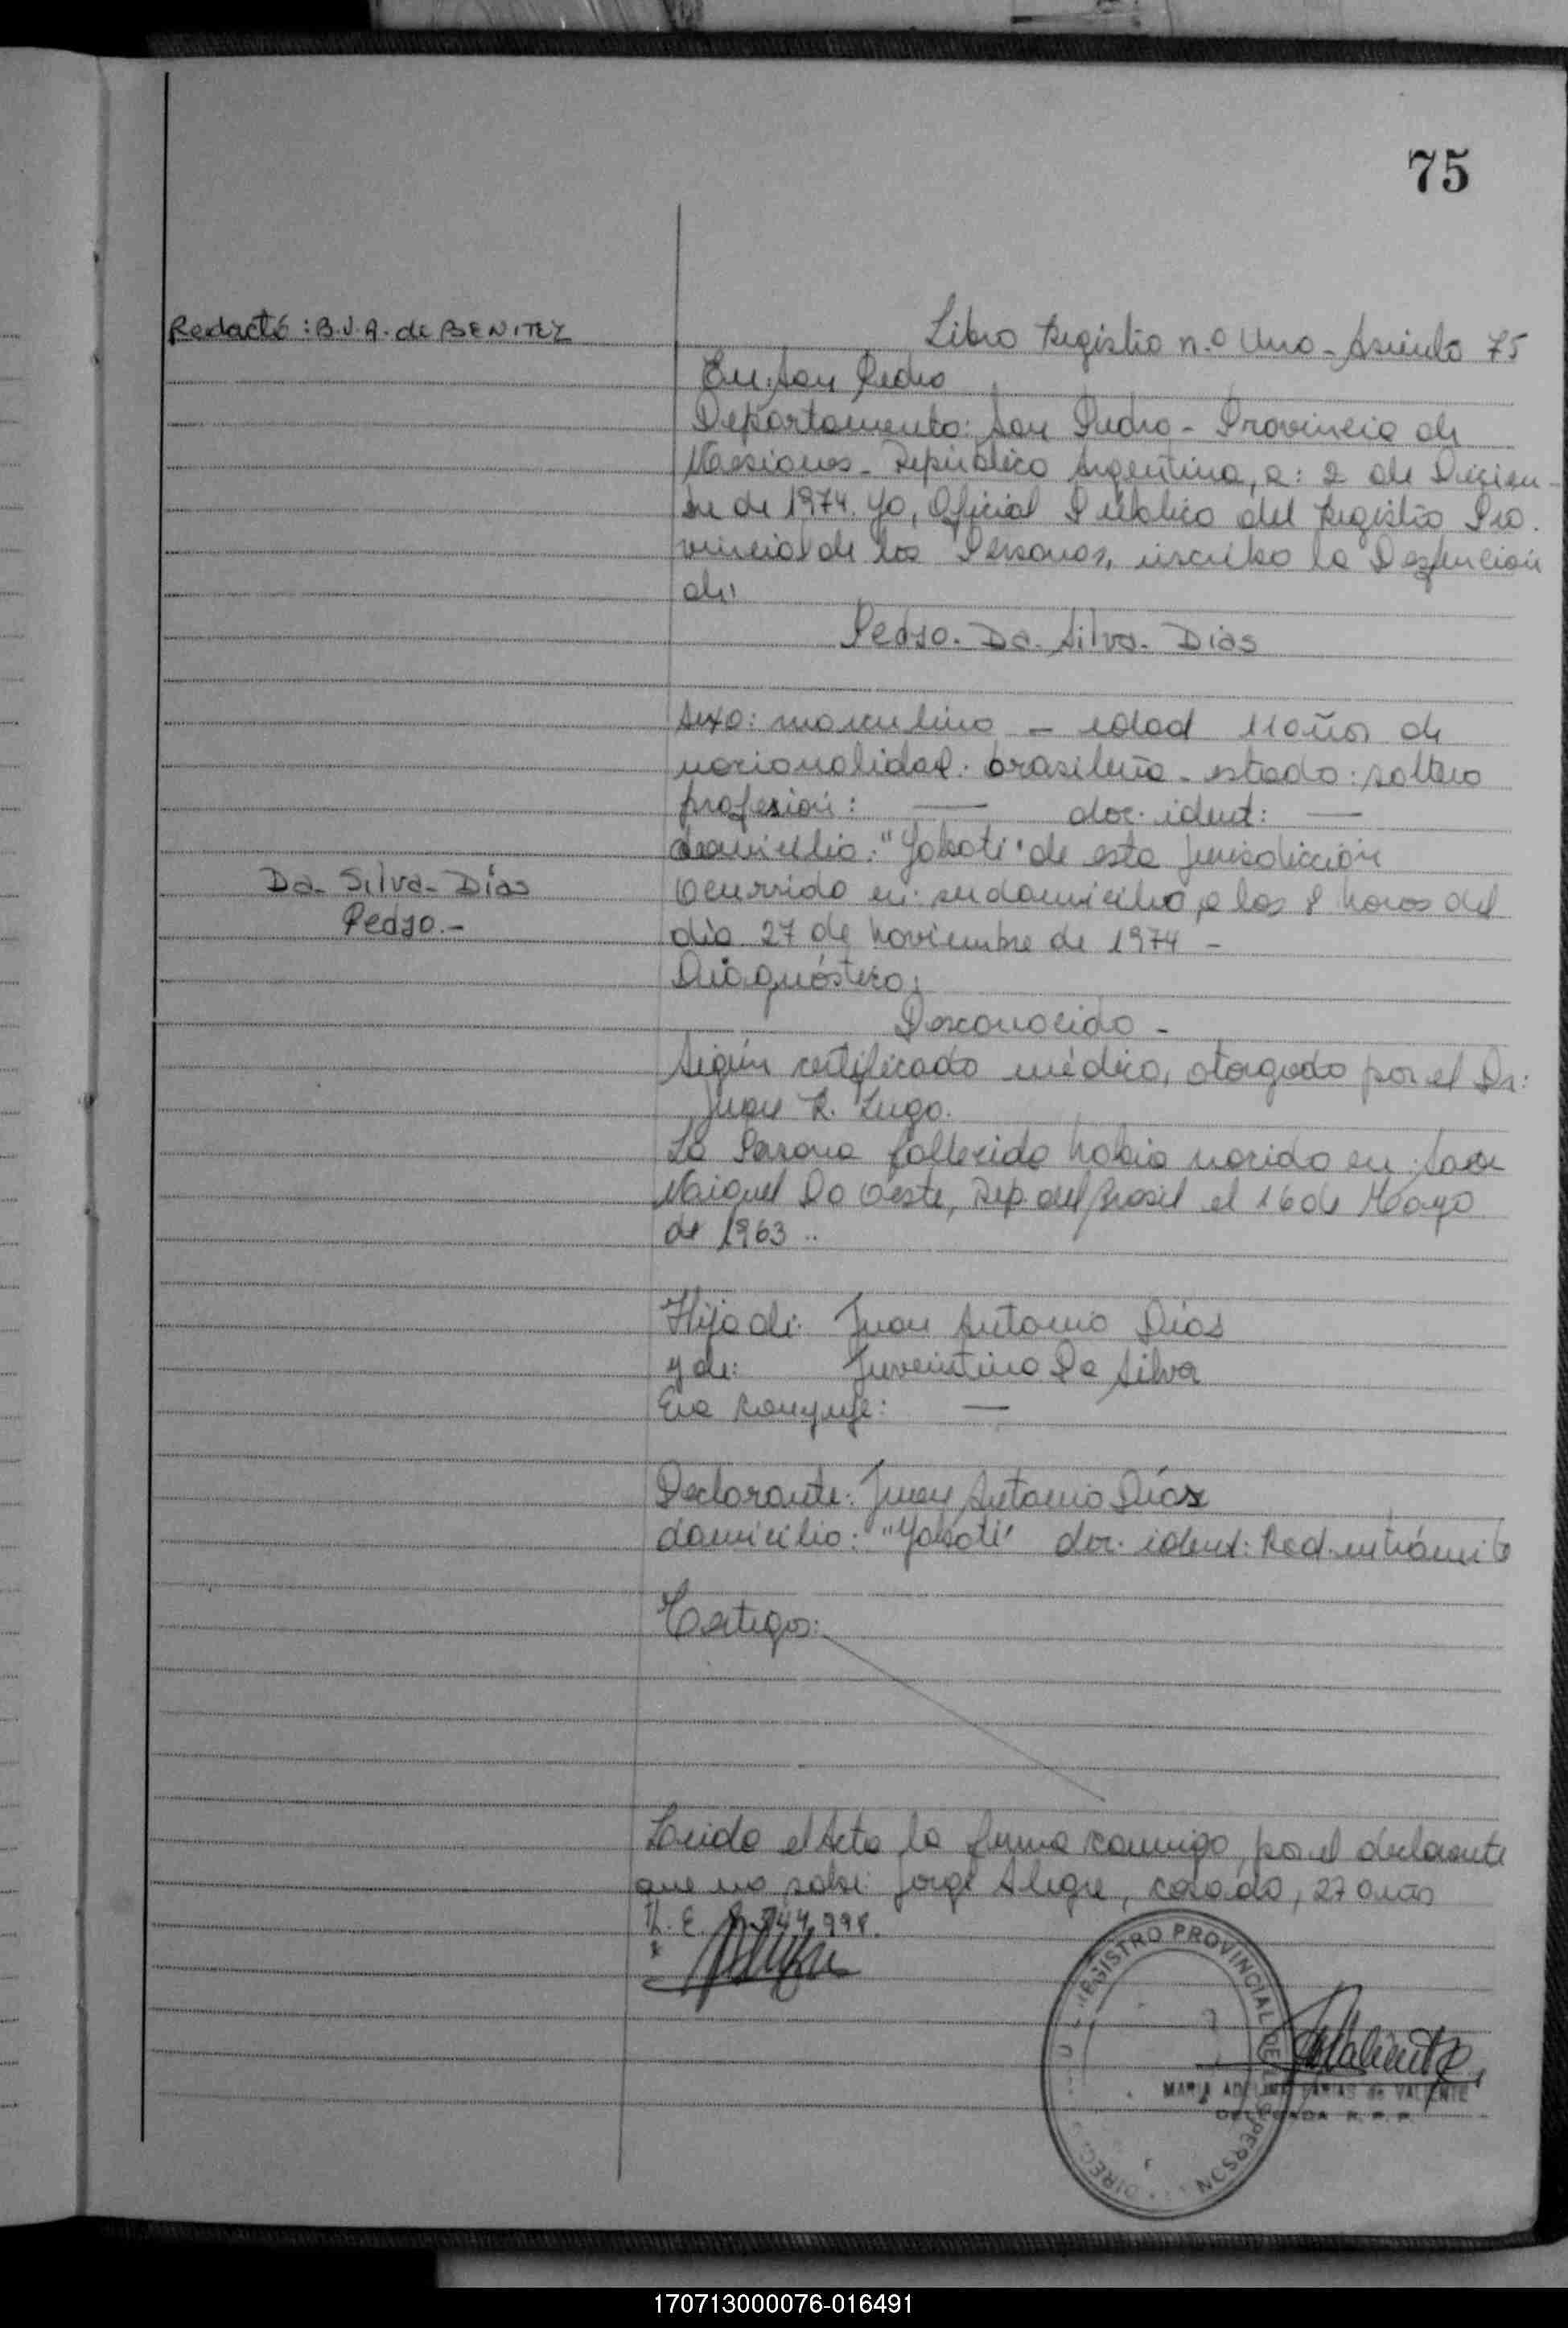 75
Redactó: B.J.A. de BENITEZ
Libro Registro n.º Uno - Asiento 75
En: San Pedro
Departamento: San Pedro - Provincia de
Misiones - República Argentina, a: 2 de Diciem-
bre de 1974. Yo, Oficial Público del Registro Pro-
vincial de las Personas, inscribo la Defunción
de:
Pedro - Da - Silva - Dias
Sexo: masculino - edad 11 años de
nacionalidad: brasileña - estado: soltero
profesión: — doc. ident: —
domicilio: "Yaboti" de esta jurisdicción
Da - Silva - Dias
Pedro.-
Ocurrido en: su domicilio, a las 8 horas del
día 27 de noviembre de 1974 -
Diagnóstico:
Desconocido -
Según certificado médico, otorgado por el Dr:
Juan R. Lugo.
La Persona fallecida había nacido en: San
Miguel Do Oeste, Rep. del Brasil el 16 de Mayo
de 1963 ..
Hijo de: Juan Antonio Dias
y de: Juventina Da Silva
Era conyuge: —
Declarante: Juan Antonio Dias
domicilio: "Yaboti" doc. ident: Rad. en trámite
Testigos:
Leída el Acta la firma conmigo, por el declarante
que no sabe: Jorge Alegre, casado, 27 años
L.E. 744.998.
REGISTRO PROVINCIAL DE LAS PERSON
DIREC
MARIA ADELINA FARIAS de VALIENTE
DELEGADA R. P. P.
170713000076-016491